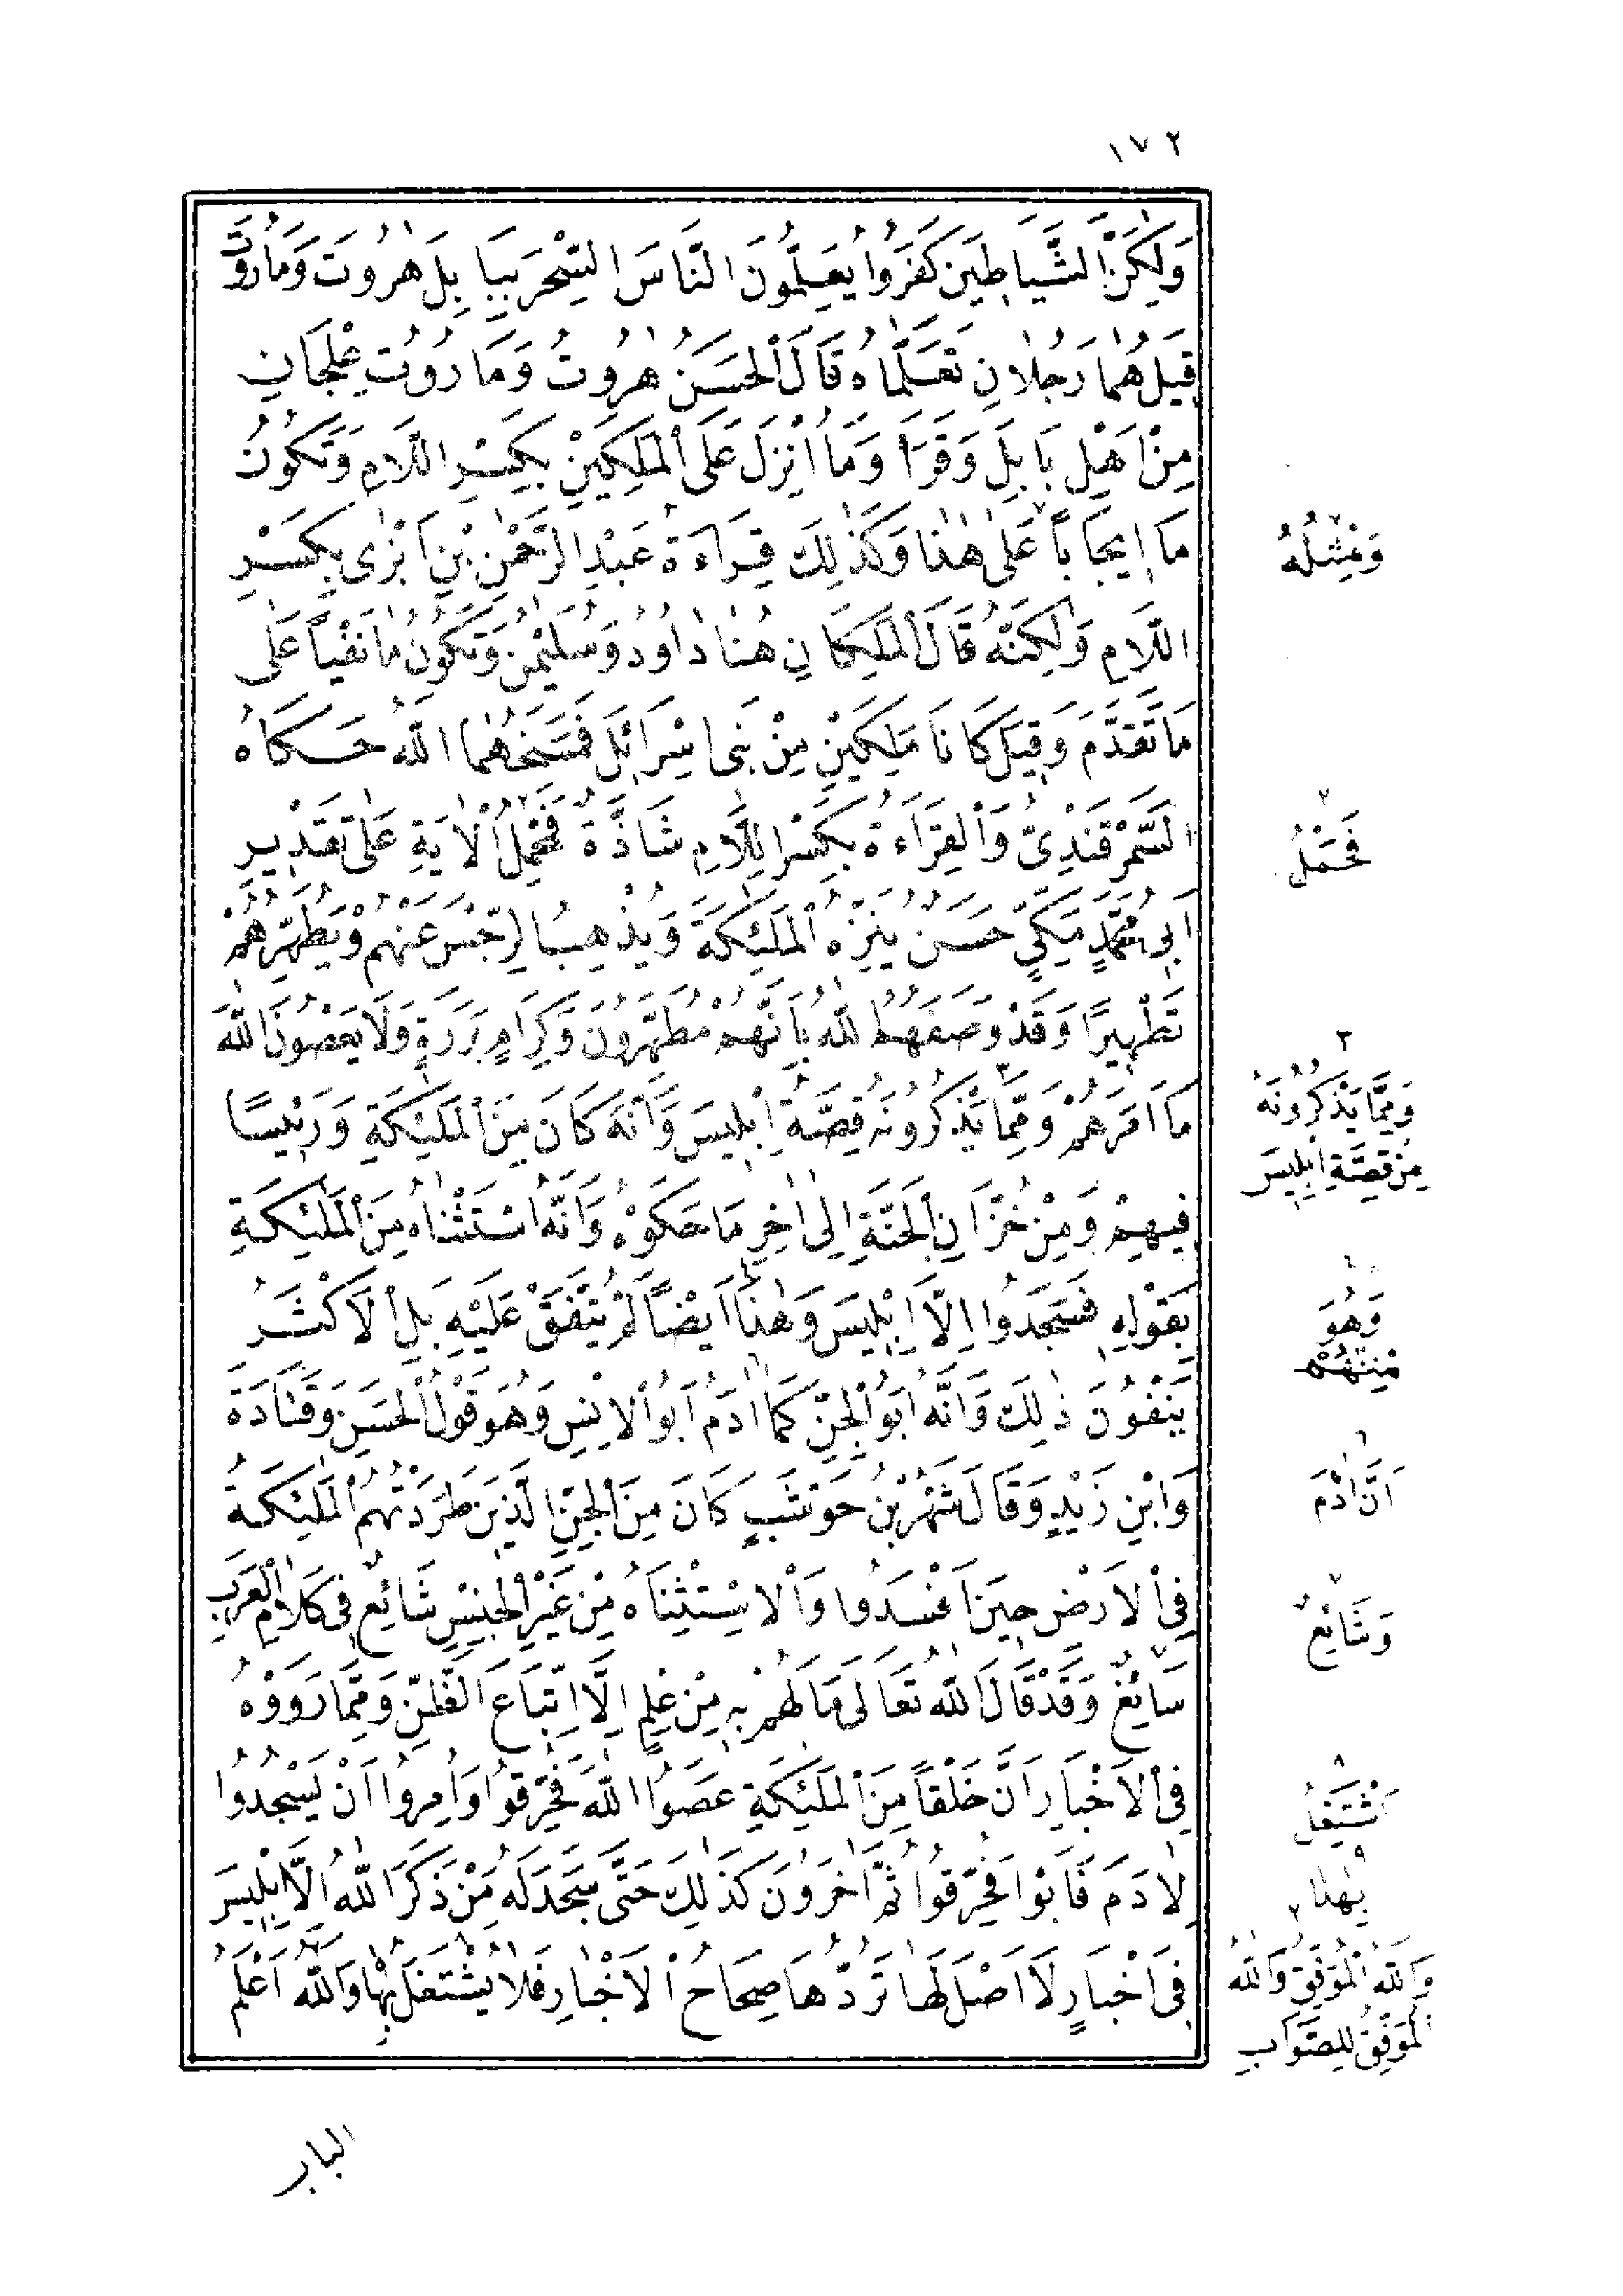 ١٧٢
وَلٰكِنَّ الشَّيَاطِينَ كَفَرُوا يُعَلِّمُونَ النَّاسَ السِّحْرَ بِبَابِلَ هٰرُوتَ وَمَارُوتَ
قِيلَ هُمَا رَجُلَانِ تَعَلَّمَاهُ قَالَ الْحَسَنُ هٰرُوتُ وَمَارُوتُ عِلْجَانِ
مِنْ اَهْلِ بَابِلَ وَقَرَأَ وَمَا اُنْزِلَ عَلَى الْمَلِكَيْنِ بِكَسْرِ اللَّامِ وَتَكُونُ
مَا اِيجَابًا عَلٰى هٰذَا وَكَذٰلِكَ قِرَاءَةُ عَبْدِ الرَّحْمٰنِ بْنِ اَبْزٰى بِكَسْرِ
اللَّامِ وَلٰكِنَّهُ قَالَ الْمَلِكَانِ هُنَا دَاوُدُ وَسُلَيْمٰنُ وَتَكُونُ مَا نَفْيًا عَلٰى
مَا تَقَدَّمَ وَقِيلَ كَانَا مَلِكَيْنِ مِنْ بَنِى اِسْرَائِلَ فَمَسَخَهُمَا اللّٰهُ حَكَاهُ
السَّمَرْقَنْدِىُّ وَالْقِرَاءَةُ بِكَسْرِ اللَّامِ شَاذَّةٌ فَحَمْلُ الْاٰيَةِ عَلٰى تَقْدِيرِ
اَبِى مُحَمَّدٍ مَكِّيٍّ حَسَنٌ يُنَزِّهُ الْمَلٰئِكَةَ وَيُذْهِبُ الرِّجْسَ عَنْهُمْ وَيُطَهِّرُهُمْ
تَطْهِيرًا وَقَدْ وَصَفَهُمُ اللّٰهُ بِاَنَّهُمْ مُطَهَّرُونَ وَكِرَامٍ بَرَرَةٍ وَلَا يَعْصُونَ اللّٰهَ
مَا اَمَرَهُمْ وَمِمَّا يَذْكُرُونَهُ قِصَّةُ اِبْلِيسَ وَاَنَّهُ كَانَ مِنَ الْمَلٰئِكَةِ وَرَئِيسًا
فِيهِمْ وَمِنْ خُزَّانِ الْجَنَّةِ اِلٰى اٰخِرِ مَا حَكَوْهُ وَاَنَّهُ اسْتَثْنَاهُ مِنَ الْمَلٰئِكَةِ
بِقَوْلِهِ فَسَجَدُوا اِلَّا اِبْلِيسَ وَهٰذَا اَيْضًا لَمْ يُتَّفَقْ عَلَيْهِ بَلِ الْاَكْثَرُ
يَنْفُونَ ذٰلِكَ وَاَنَّهُ اَبُو الْجِنِّ كَمَا اٰدَمُ اَبُو الْاِنْسِ وَهُوَ قَوْلُ الْحَسَنِ وَقَتَادَةَ
وَابْنِ زَيْدٍ وَقَالَ شَهْرُ بْنُ حَوْشَبٍ كَانَ مِنَ الْجِنِّ الَّذِينَ طَرَدَتْهُمُ الْمَلٰئِكَةُ
فِى الْاَرْضِ حِينَ اَفْسَدُوا وَالْاِسْتِثْنَاءُ مِنْ غَيْرِ الْجِنْسِ شَائِعٌ فِى كَلَامِ الْعَرَبِ
سَائِغٌ وَقَدْ قَالَ اللّٰهُ تَعَالَى مَا لَهُمْ بِهِ مِنْ عِلْمٍ اِلَّا اتِّبَاعَ الظَّنِّ وَمِمَّا رَوَوْهُ
فِى الْاَخْبَارِ اَنَّ خَلْقًا مِنَ الْمَلٰئِكَةِ عَصَوُا اللّٰهَ فَحُرِّقُوا وَاُمِرُوا اَنْ يَسْجُدُوا
لِاٰدَمَ فَاَبَوْا فَحُرِّقُوا ثُمَّ اٰخَرُونَ كَذٰلِكَ حَتَّى سَجَدَ لَهُ مَنْ ذَكَرَ اللّٰهُ اِلَّا اِبْلِيسَ
فِى اَخْبَارٍ لَا اَصْلَ لَهَا تَرُدُّهَا صِحَاحُ الْاَخْبَارِ فَلَا يُشْتَغَلُ بِهَا وَاللّٰهُ اَعْلَمُ
وَمِثْلُهُ
فَحَمْلُ
٣
وَمِمَّا يَذْكُرُونَهُ
مِنْ قِصَّةِ اِبْلِيسَ
وَهُوَ
مِنْهُمْ
٦
اَنَّ اٰدَمَ
٧
وَشَائِعٌ
٨
نَشْتَغِلُ
٩
بِهٰذَا
وَاللّٰهُ الْمُوَفِّقُ وَاللّٰهُ
الْمُوَفِّقُ لِلصَّوَابِ
الباب